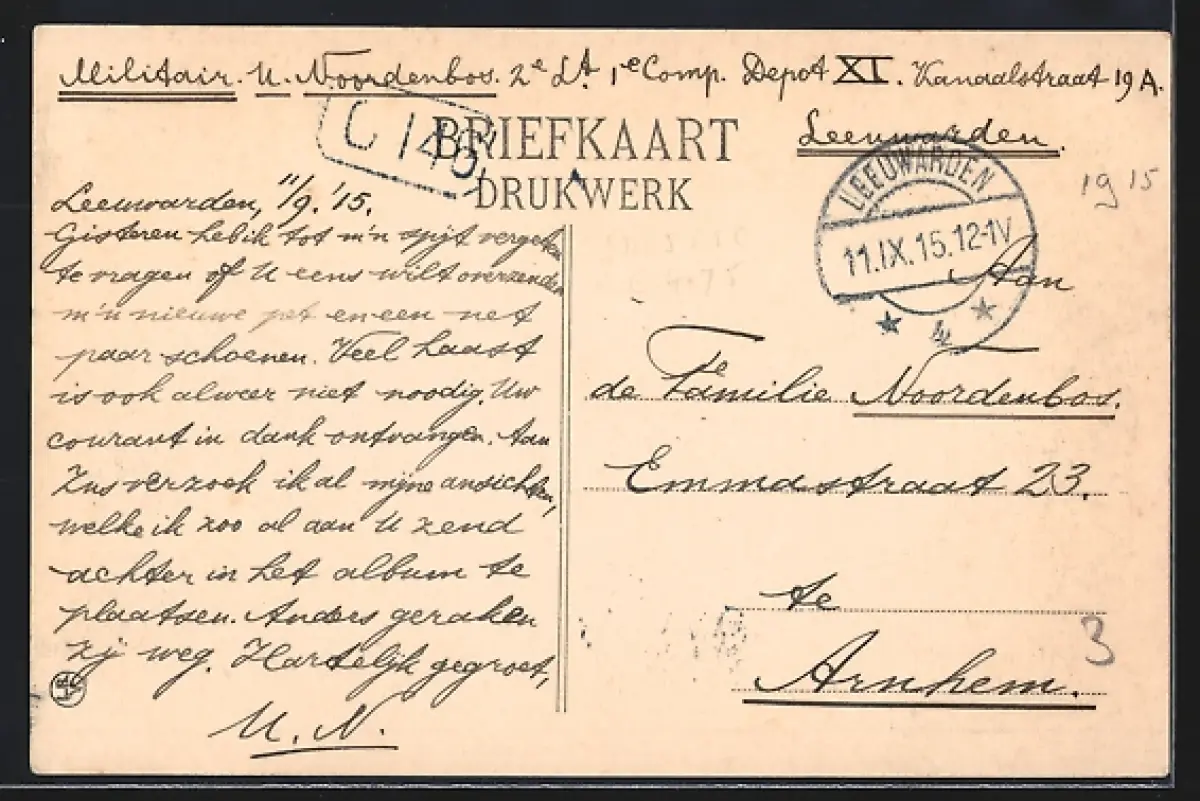 Militair. U. Noordenbos. 2e Lt. 1e Comp. Depot XI. Kanaalstraat 19 A.
Leeuwarden.
BRIEFKAART
DRUKWERK
LEEUWARDEN
11.IX.15.12-1V
4
1915
Leeuwarden, 11/9.'15.
Gisteren heb ik tot m'n spijt vergeten
te vragen of U eens wilt overzenden
m'n nieuwe pet en een net
paar schoenen. Veel haast
is ook alweer niet noodig. Uw
courant in dank ontvangen. Aan
Zus verzoek ik al mijne ansichten,
welke ik zoo al aan U zend
achter in het album te
plaatsen. Anders geraken
zij weg. Hartelijk gegroet,
U. N.
Aan
de Familie Noordenbos.
Emmastraat 23.
te
Arnhem.
3